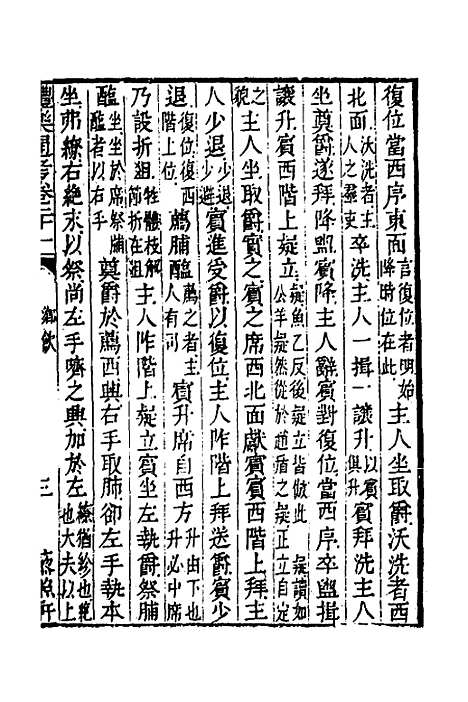 復位當西序東面言復位者明始降時位在此主人坐取爵沃洗者西
北面沃洗者主人之羣吏卒洗主人一揖一讓升以賓俱升賓拜洗主人
坐奠爵遂拜降盥賓降主人辭賓對復位當西序卒盥揖
讓升賓西階上疑立疑魚乙反後疑立皆倣此 疑讀如公羊疑然從於趙盾之疑正立自定
之貌主人坐取爵實之賓之席西北面獻賓賓西階上拜主
人少退少退少避賓進受爵以復位主人阼階上拜送爵賓少
退復位復西階上位薦脯醢薦之者主人有司賓升席自西方升由下也升必中席
乃設折俎牲體枝解節折在俎主人阼階上疑立賓坐左執爵祭脯
醢坐坐於席祭脯醢者以右手奠爵於薦西興右手取肺卻左手執本
坐弗繚右絶末以祭尚左手嚌之興加於左繚猶紾也絶也大夫以上
禮樂通考卷二十一 鄉飲 三 軒